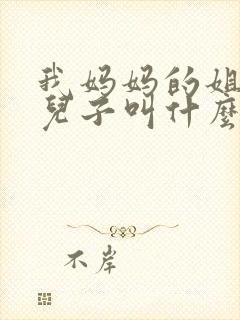 我妈妈的姐
兒子叫什麼
不岸